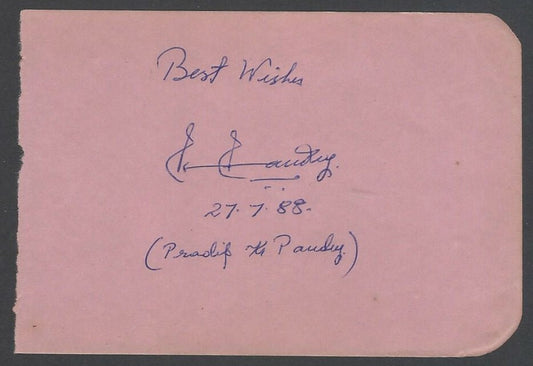 Best Wishes
Pandey.
27.7.88.
(Pradip K Pandey)